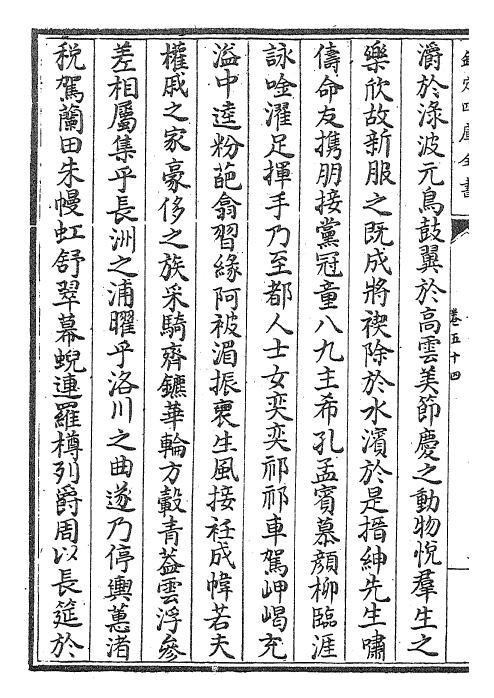 欽定四庫全書
卷五十四
灂於渌波元鳥鼓翼於高雲美節慶之動物悅羣生之
樂欣故新服之既成將禊除於水濱於是搢紳先生嘯
儔命友携朋接黨冠童八九主希孔孟賓慕顔柳臨涯
詠唫濯足揮手乃至都人士女奕奕祁祁車駕岬嵑充
溢中逵粉葩翕習緣阿被湄振褏生風接袵成幃若夫
權戚之家豪侈之族采騎齊鑣華輪方轂青葢雲浮參
差相屬集乎長洲之浦曜乎洛川之曲遂乃停輿蕙渚
税駕蘭田朱幔虹舒翠幕蜺連羅樽列爵周以長筵於